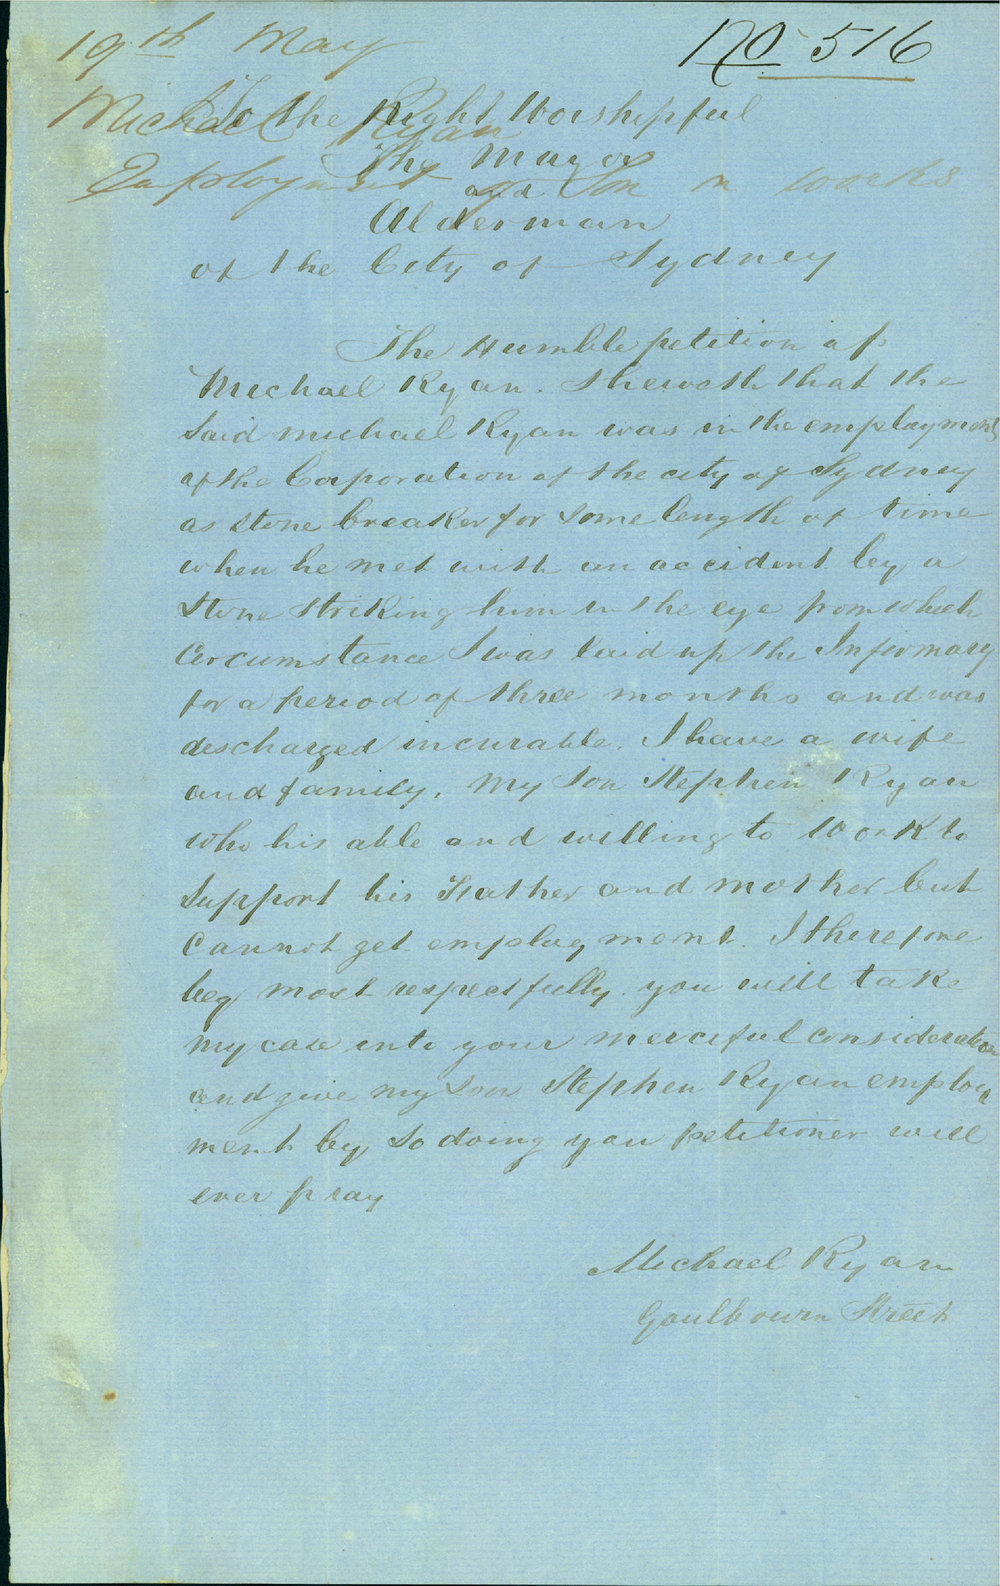 19th May
No 516
Michael Ryan
Employment of Son on works
To the Right Worshipful
The Mayor
and
Alderman
of the City of Sydney
The Humble petition of
Michael Ryan. Sheweth that the
Said Michael Ryan was in the employment
of the Corporation of the city of Sydney
as stone breaker for some length of time
when he met with an accident by a
Stone striking him in the eye from which
Circumstance I was laid up the Infirmary
for a period of three months and was
descharged incurable. I have a wife
and family, My Son Stephen Ryan
who his able and willing to Work to
Support his Father and mother but
Cannot get employment. I therefore
beg most respectfully you will take
my case into your merciful consideration
and give my Son Stephen Ryan employ
ment by so doing you petitioner will
ever pray
Michael Ryan
Goulbourn Street